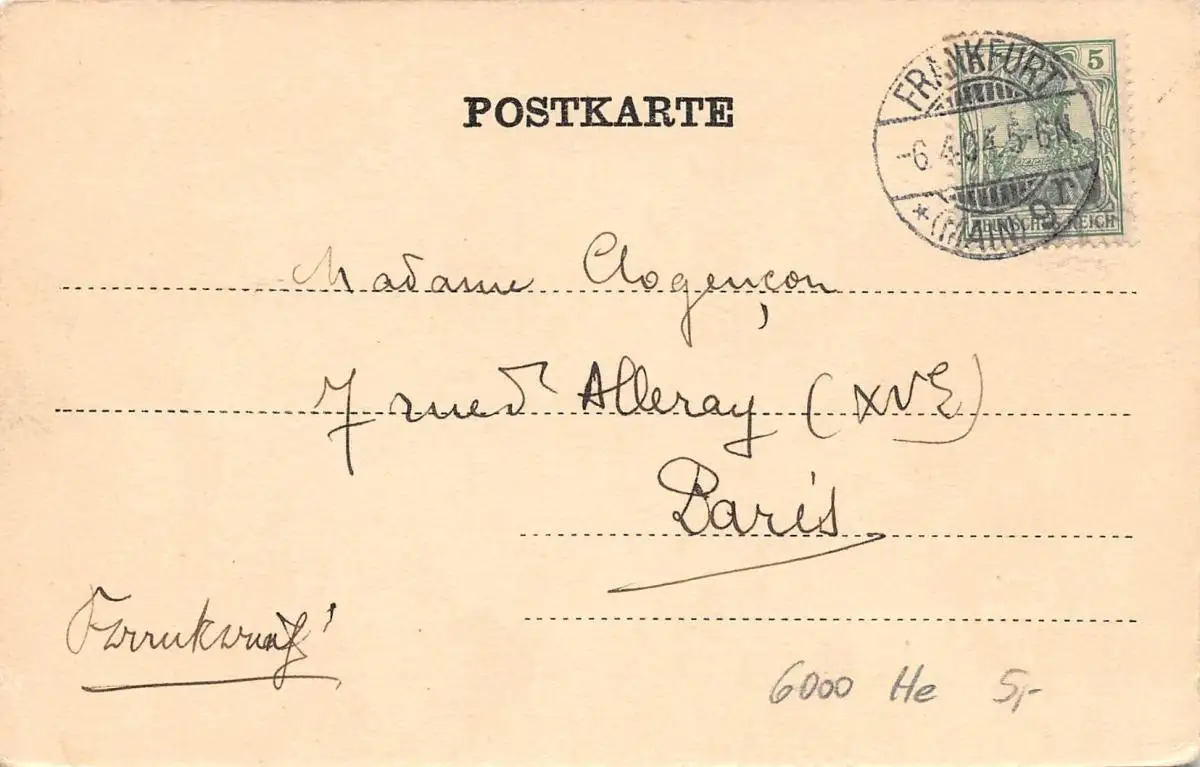 POSTKARTE
5
FRANKFURT
-6.4.04.5-6N.
*(MAIN) 9
DEUTSCHES REICH
Madame Clogençon
7 rue d'Alleray (XVE)
Paris
Frankreich
6000 He 5,-